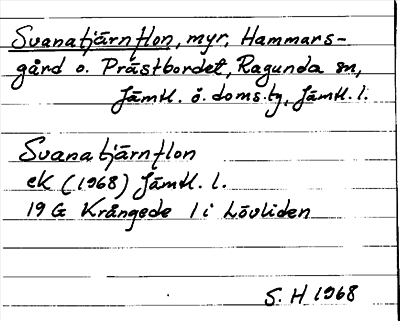 Svanatjärnflon, myr, Hammars-
gård o. Prästbordet, Ragunda sn,
Jämtl. ö. doms.tg, Jämtl. l.
Svanatjärnflon
ek (1968) Jämtl. l.
19 G Krångede 1 i Lövliden
S. H 1968